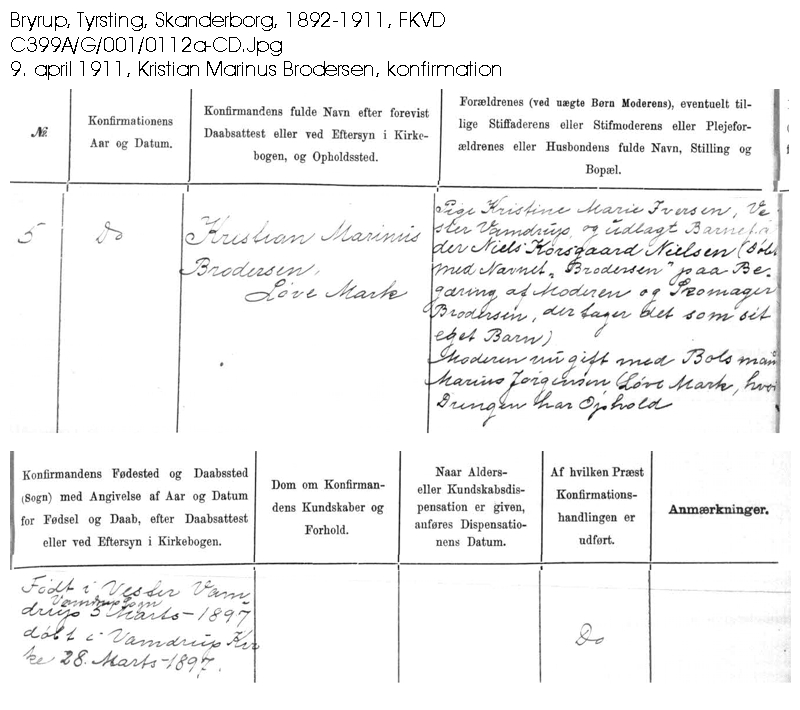 Bryrup, Tyrsting, Skanderborg, 1892-1911, FKVD
C399A/G/001/0112a-CD.Jpg
9. april 1911, Kristian Marinus Brodersen, konfirmation
№.
Konfirmationens
Aar og Datum.
Konfirmandens fulde Navn efter forevist
Daabsattest eller ved Eftersyn i Kirke-
bogen, og Opholdssted.
Forældrenes (ved uægte Børn Moderens), eventuelt til-
lige Stiffaderens eller Stifmoderens eller Plejefor-
ældrenes eller Husbondens fulde Navn, Stilling og
Bopæl.
5
Do
Kristian Marinus
Brodersen,
Løve Mark
Pige Kristine Marie Iversen, Ve-
ster Vamdrup, og udlagt Barnefa
der Niels Korsgaard Nielsen (døbt
med Navnet „Brodersen" paa Be-
gæring af Moderen og Skomager
Brodersen, der tager det som sit
eget Barn)
Moderen nu gift med Bolsmand
Marius Jørgensen (Løve Mark, hvor
Drengen har Ophold
Konfirmandens Fødested og Daabssted
(Sogn) med Angivelse af Aar og Datum
for Fødsel og Daab, efter Daabsattest
eller ved Eftersyn i Kirkebogen.
Dom om Konfirman-
dens Kundskaber og
Forhold.
Naar Alders-
eller Kundskabsdis-
pensation er given,
anføres Dispensatio-
nens Datum.
Af hvilken Præst
Konfirmations-
handlingen er
udført.
Anmærkninger.
Født i Vester Vam-
Vamdrup Sogn
drup 5 Marts - 1897
døbt i Vamdrup Kir
ke 28. Marts - 1897.
Do